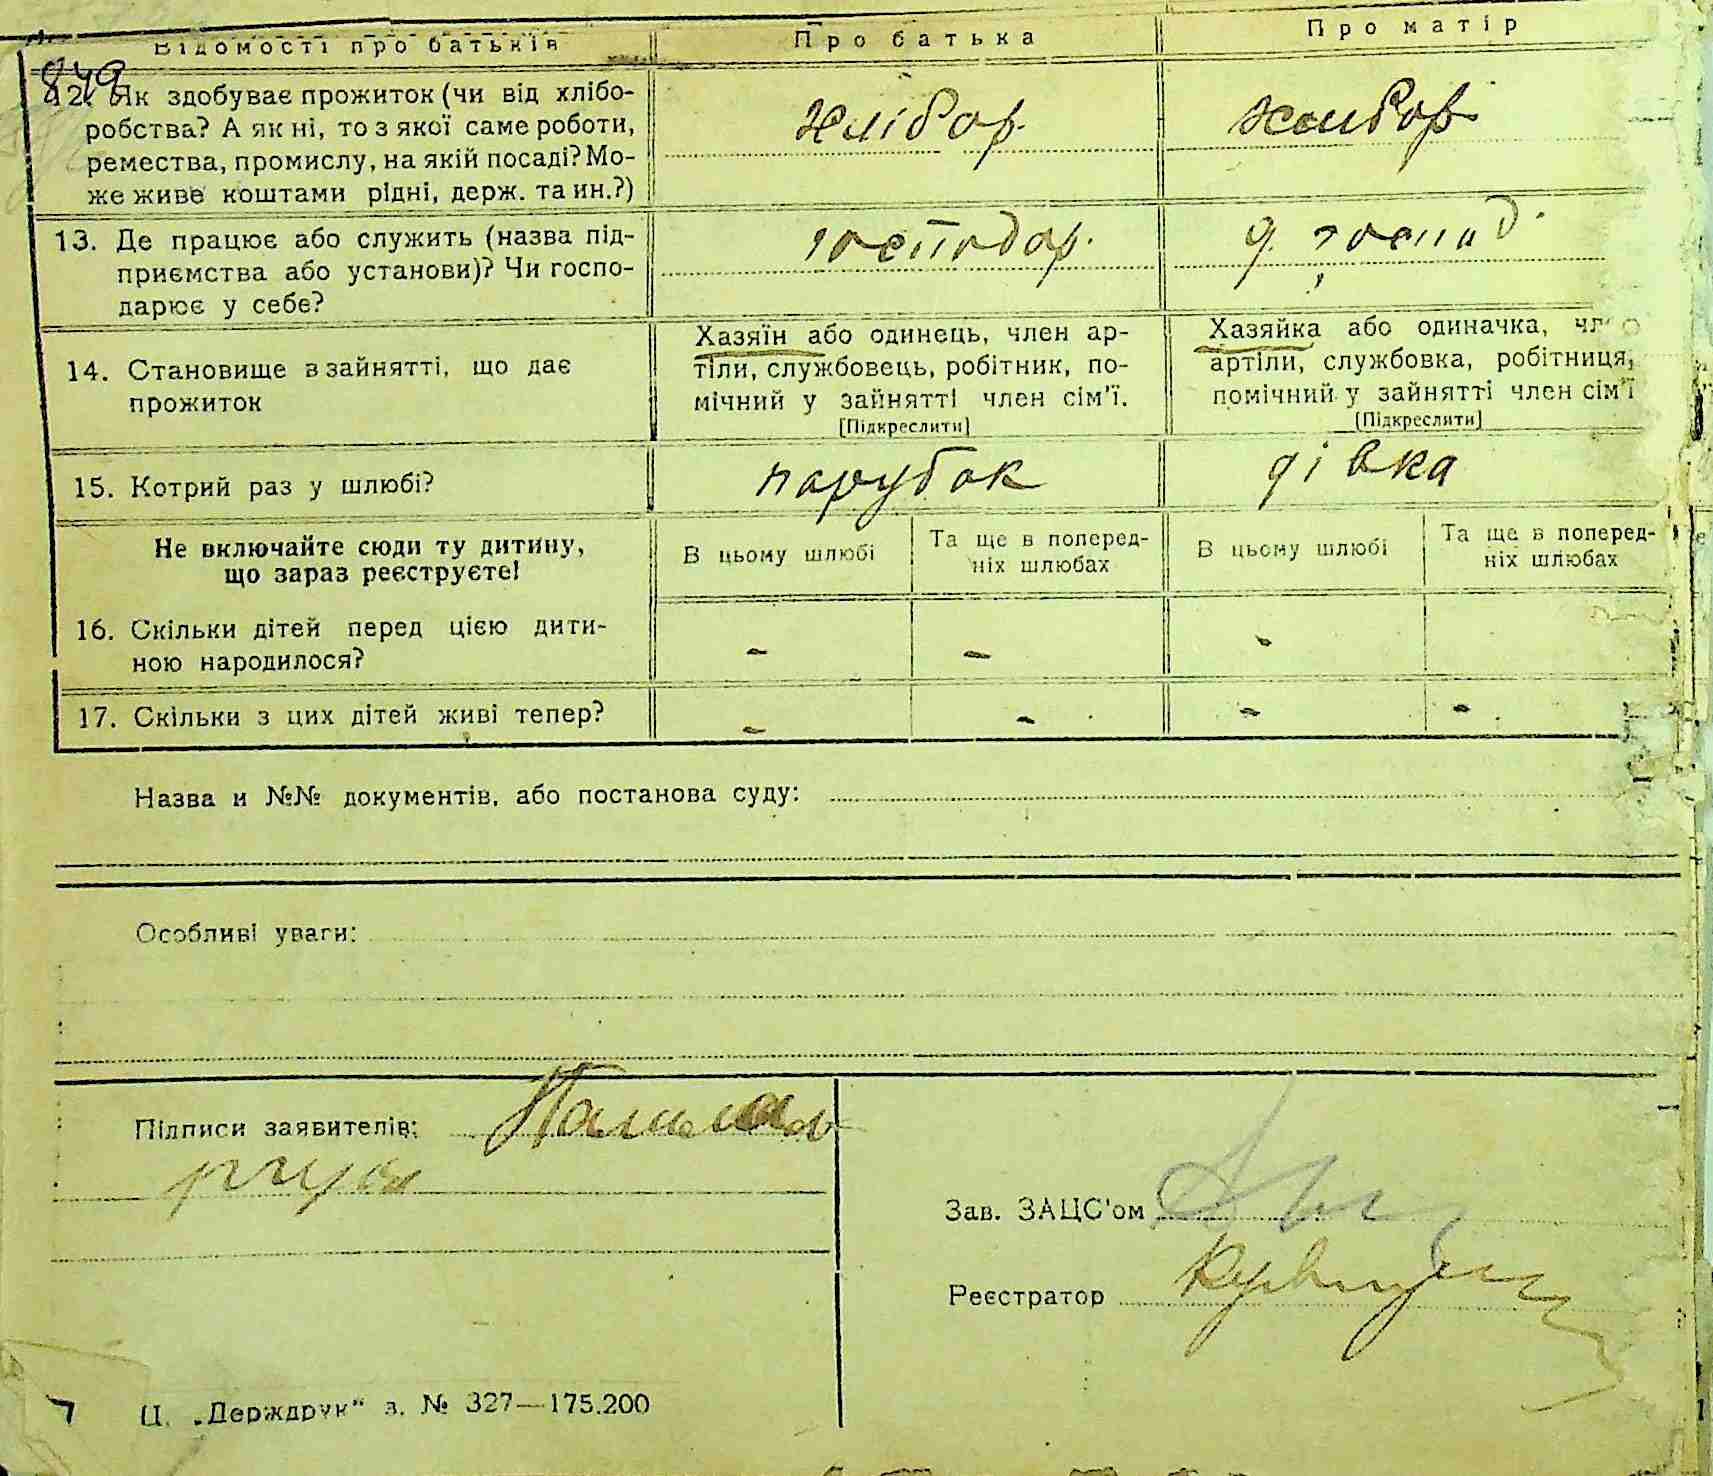 Відомості про батьків Про батька Про матір
849
12. Як здобуває прожиток (чи від хлібо-
робства? А як ні, то з якої саме роботи,
ремества, промислу, на якій посаді? Мо-
же живе коштами рідні, держ. та ин.?)
хлібор. хлибор.
13. Де працює або служить (назва під-
приємства або установи)? Чи госпо-
дарює у себе?
господар. д. господ.
14. Становище в зайнятті, що дає
прожиток
Хазяїн або одинець, член ар-
тіли, службовець, робітник, по-
мічний у зайнятті член сім'ї.
[Підкреслити]
Хазяйка або одиначка, чл
артіли, службовка, робітниця,
помічний у зайнятті член сім'ї
[Підкреслити]
15. Котрий раз у шлюбі? парубок дівка
Не включайте сюди ту дитину,
що зараз реєструєте!
В цьому шлюбі
Та ще в поперед-
ніх шлюбах
В цьому шлюбі
Та ще в поперед-
ніх шлюбах
16. Скільки дітей перед цією дити-
ною народилося?
- - -
17. Скільки з цих дітей живі тепер? - - - -
Назва и №№ документів, або постанова суду:
Особливі уваги:
Підписи заявителів:
Зав. ЗАЦС'ом
Реєстратор
Ц. „Держдрук“ з. № 327—175.200